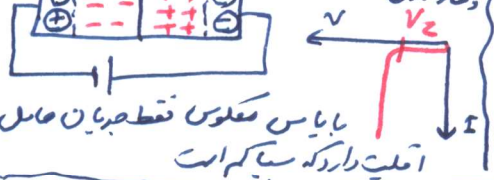 V
V_Z
I
بایاس معکوس فقط جریان حامل
اقلیت دارد که بسیار کم است